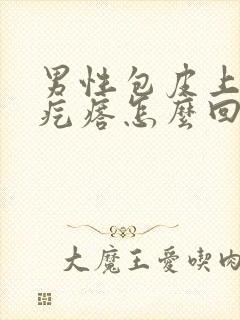 男性包皮上
疙瘩怎麼回
大魔王愛喫肉